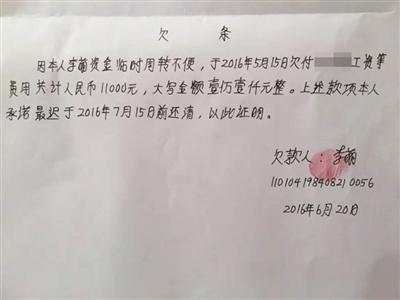 欠 条
因本人李萌资金临时周转不便，于2016年5月15日欠付 工资等
费用共计人民币11000元，大写金额壹仿壹仟元整。上述款项本人
承诺最迟于2016年7月15日前还清，以此证明。
欠款人：李萌
110104198408210056
2016年6月20日